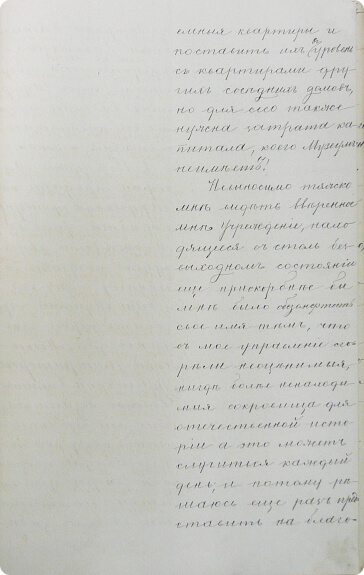 емния квартиры и
поставить ихъ въ уровень
съ квартирами дру-
гихъ соседнихъ домовъ,
но для сего также
нужна затрата ка-
питала, коего Музеумъ
неимѣетъ!
Невыносимо тяжело
мнѣ видѣть ввѣренное
мнѣ Учрежденіе, нахо-
дящееся въ столь без-
выходномъ состояніи
еще прискорбнѣе бы
мнѣ было обезсмертить
свое имя тѣмъ, что
въ мое управленіе сго-
рѣли неоцѣнимыя,
нигдѣ болѣе ненаходи-
мыя сокровища для
отечественной исто-
ріи а это можетъ
случиться каждый
день, и потому рѣ-
шаюсь еще разъ пред-
ставить на благо-